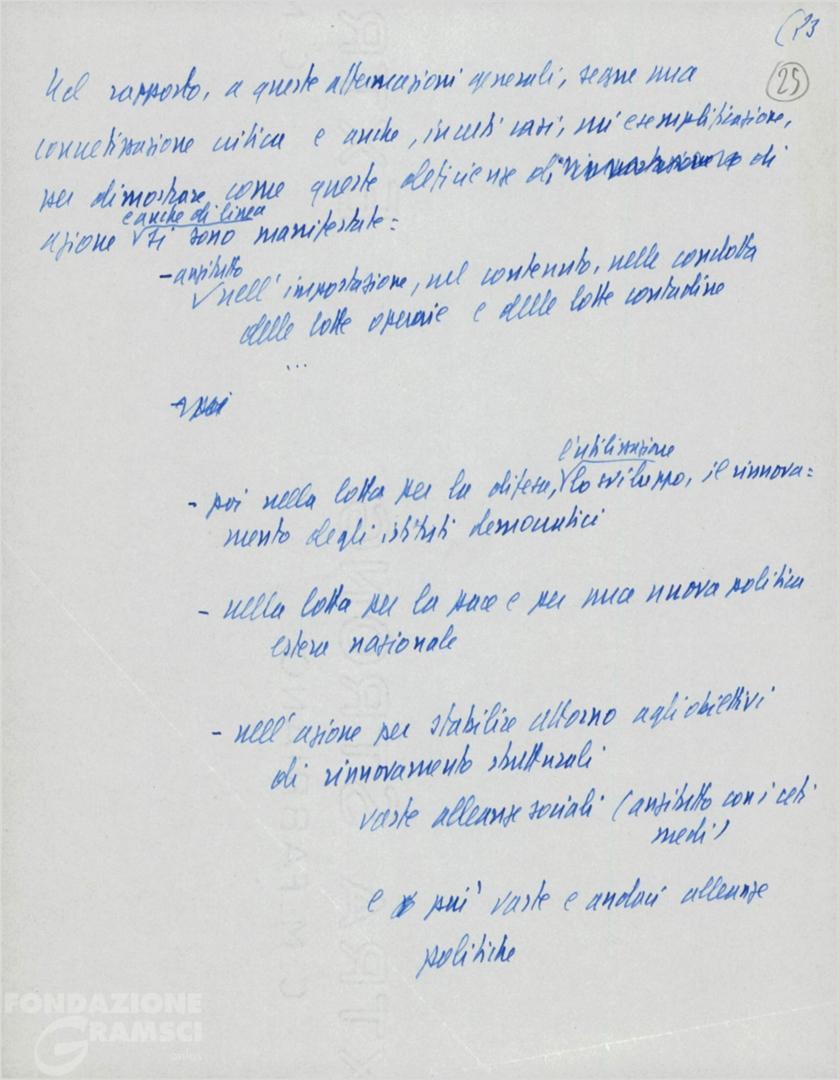 (23
25
Nel rapporto, a queste affermazioni generali, segue una
concretizzazione critica e anche, in certi casi, un'esemplificazione,
per dimostrare come queste deficienze di di
e anche di linea
azione si sono manifestate:
- anzitutto
nell'impostazione, nel contenuto, nelle condotta
delle lotte operaie e delle lotte contadine
...
- poi
l'utilizzazione
- poi nella lotta per la difesa, lo sviluppo, il rinnova=
mento degli istituti democratici
- nella lotta per la pace e per una nuova politica
estera nazionale
- nell'azione per stabilire attorno agli obiettivi
di rinnovamento strutturali
vaste alleanze sociali (anzitutto con i ceti
medi)
e più vaste e audaci alleanze
politiche
FONDAZIONE
GRAMSCI
onlus